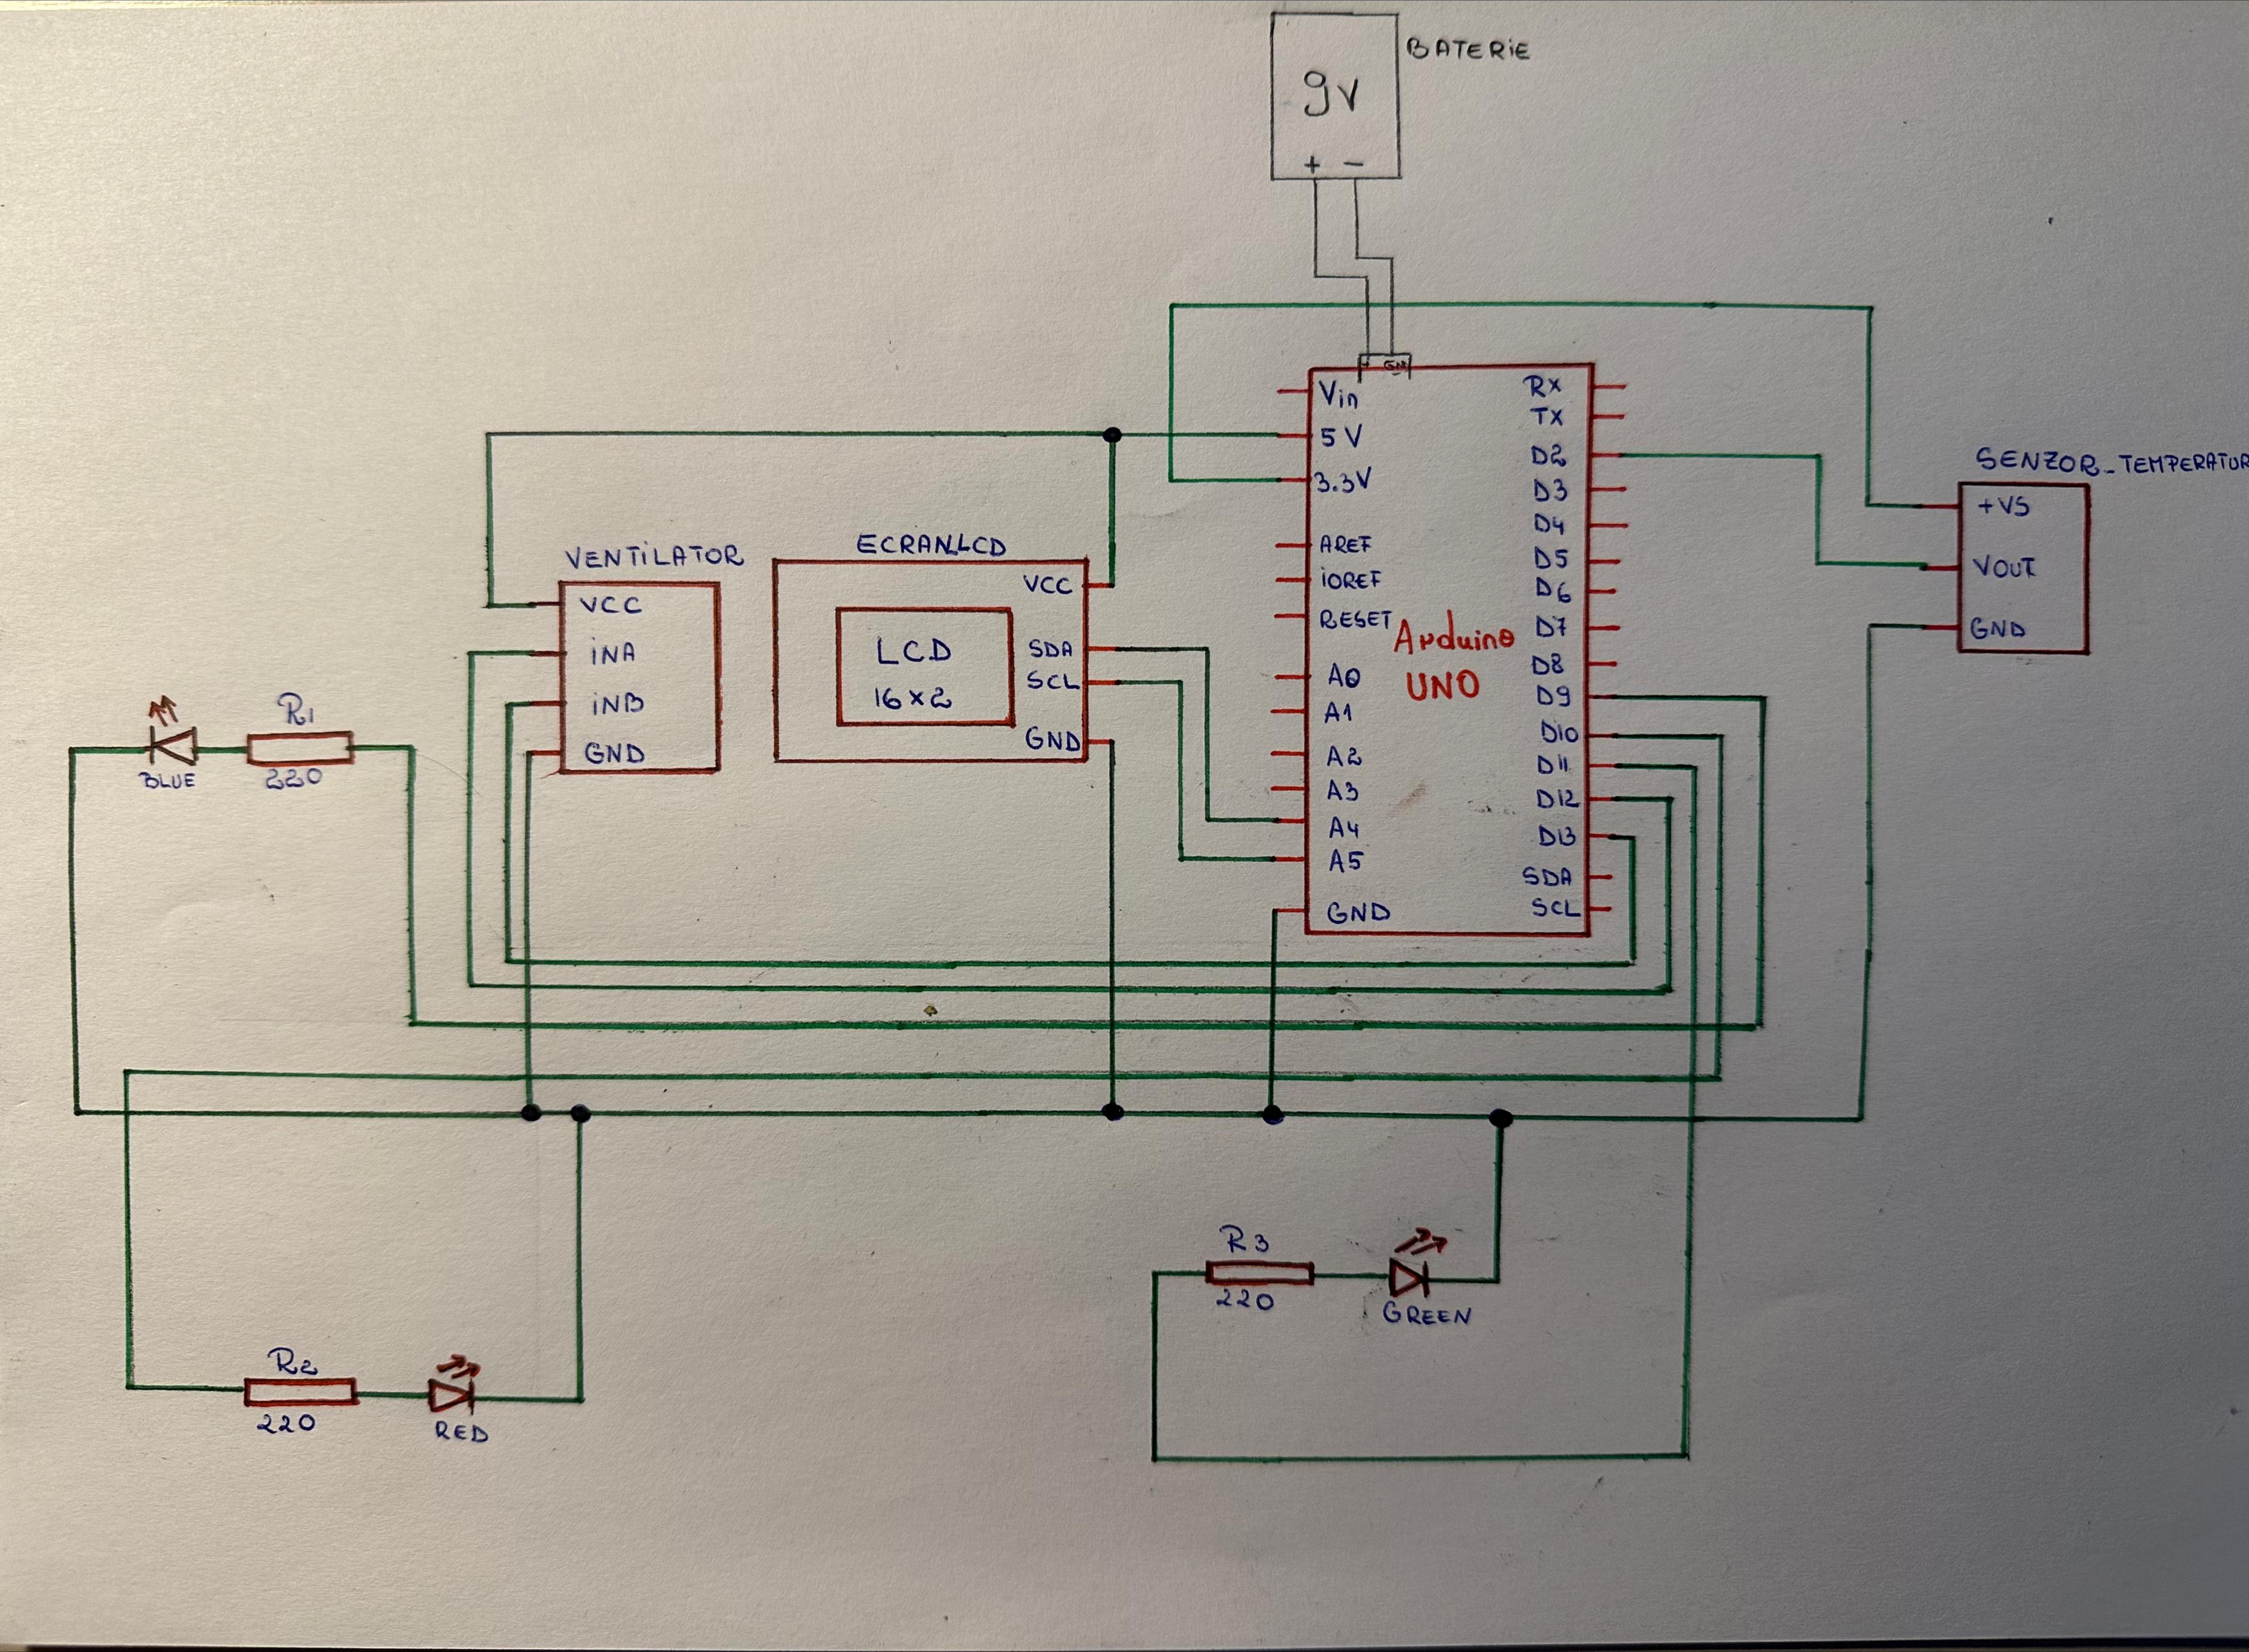 BATERiE
9V
+ -
+ GND
Vin
5V
3.3V
AREF
iOREF
RESET
A0
A1
A2
A3
A4
A5
GND
Arduino
UNO
RX
TX
D2
D3
D4
D5
D6
D7
D8
D9
D10
D11
D12
D13
SDA
SCL
SENZOR_TEMPERATUR
+VS
VOUT
GND
VENTiLATOR
VCC
iNA
iNB
GND
ECRAN_LCD
VCC
SDA
SCL
GND
LCD
16x2
R1
220
BLUE
R2
220
RED
R3
220
GREEN